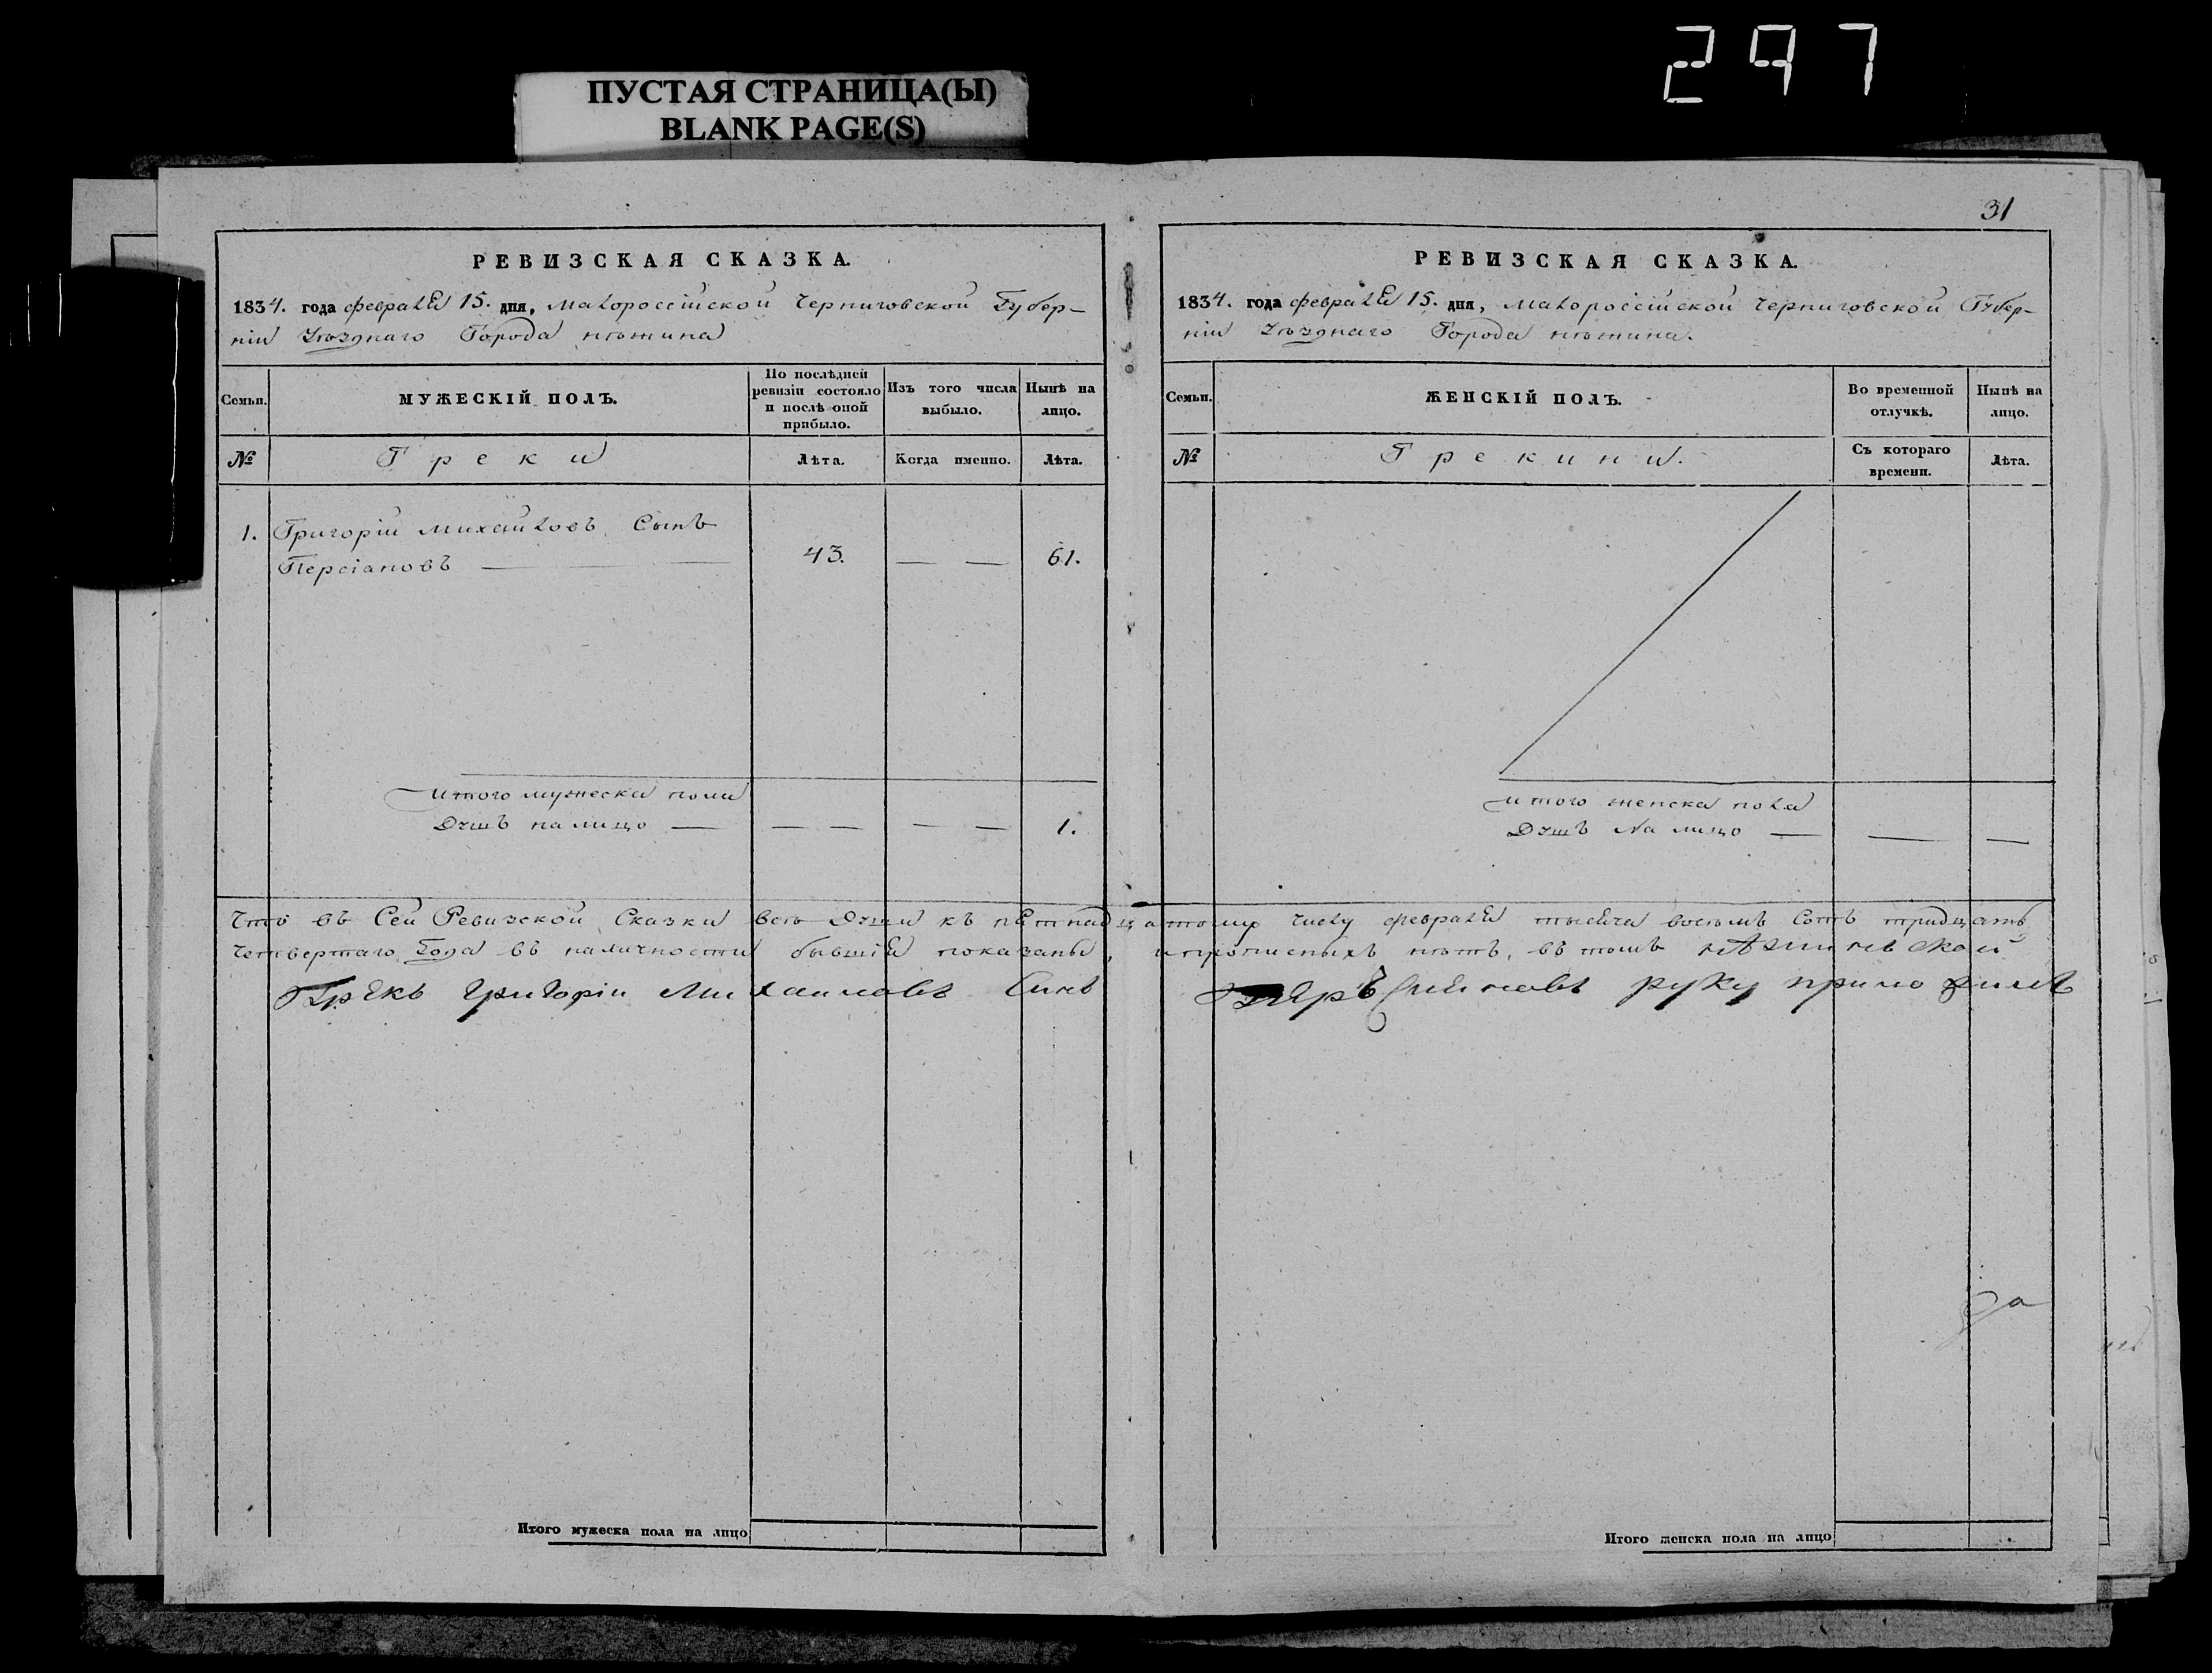 297
ПУСТАЯ СТРАНИЦА(Ы)
BLANK PAGE(S)
РЕВИЗСКАЯ СКАЗКА.
1834. года февраля 15. дня, Малороссійской Черниговской Губер-
ніи Уѣзднаго Города Нѣжина
Семьи.
МУЖЕСКІЙ ПОЛЪ.
По послѣдней
ревизіи состояло
и послѣ оной
прибыло.
Изъ того числа
выбыло.
Нынѣ на
лицо.
№ Греки Лѣта. Когда именно. Лѣта.
1. Григорій Михайловъ Сынъ
Персіановъ — — — 43. — — 61.
Итого мужеска пола
Душъ на лицо — — — — — 1.
Итого мужеска пола на лицо
31
РЕВИЗСКАЯ СКАЗКА.
1834. года февраля 15. дня, Малороссійской Черниговской Губер-
ніи Уѣзднаго Города Нѣжина.
Семьи.
ЖЕНСКІЙ ПОЛЪ.
Во временной
отлучкѣ.
Нынѣ на
лицо.
№ Грекини. Съ котораго
времени.
Лѣта.
Итого женска пола
Душъ на лицо — — —
Что въ Сей Ревизской Сказки всѣ Души къ пятнадцатому числу февраля тысяча восемь Сотъ тридцать
Четвертаго Года въ наличности бывшія показаны, и прописныхъ нѣтъ, въ томъ нѣжинской
Грекъ Григоріи Михаиловъ Синъ руку приложилъ
Итого женска пола на лицо